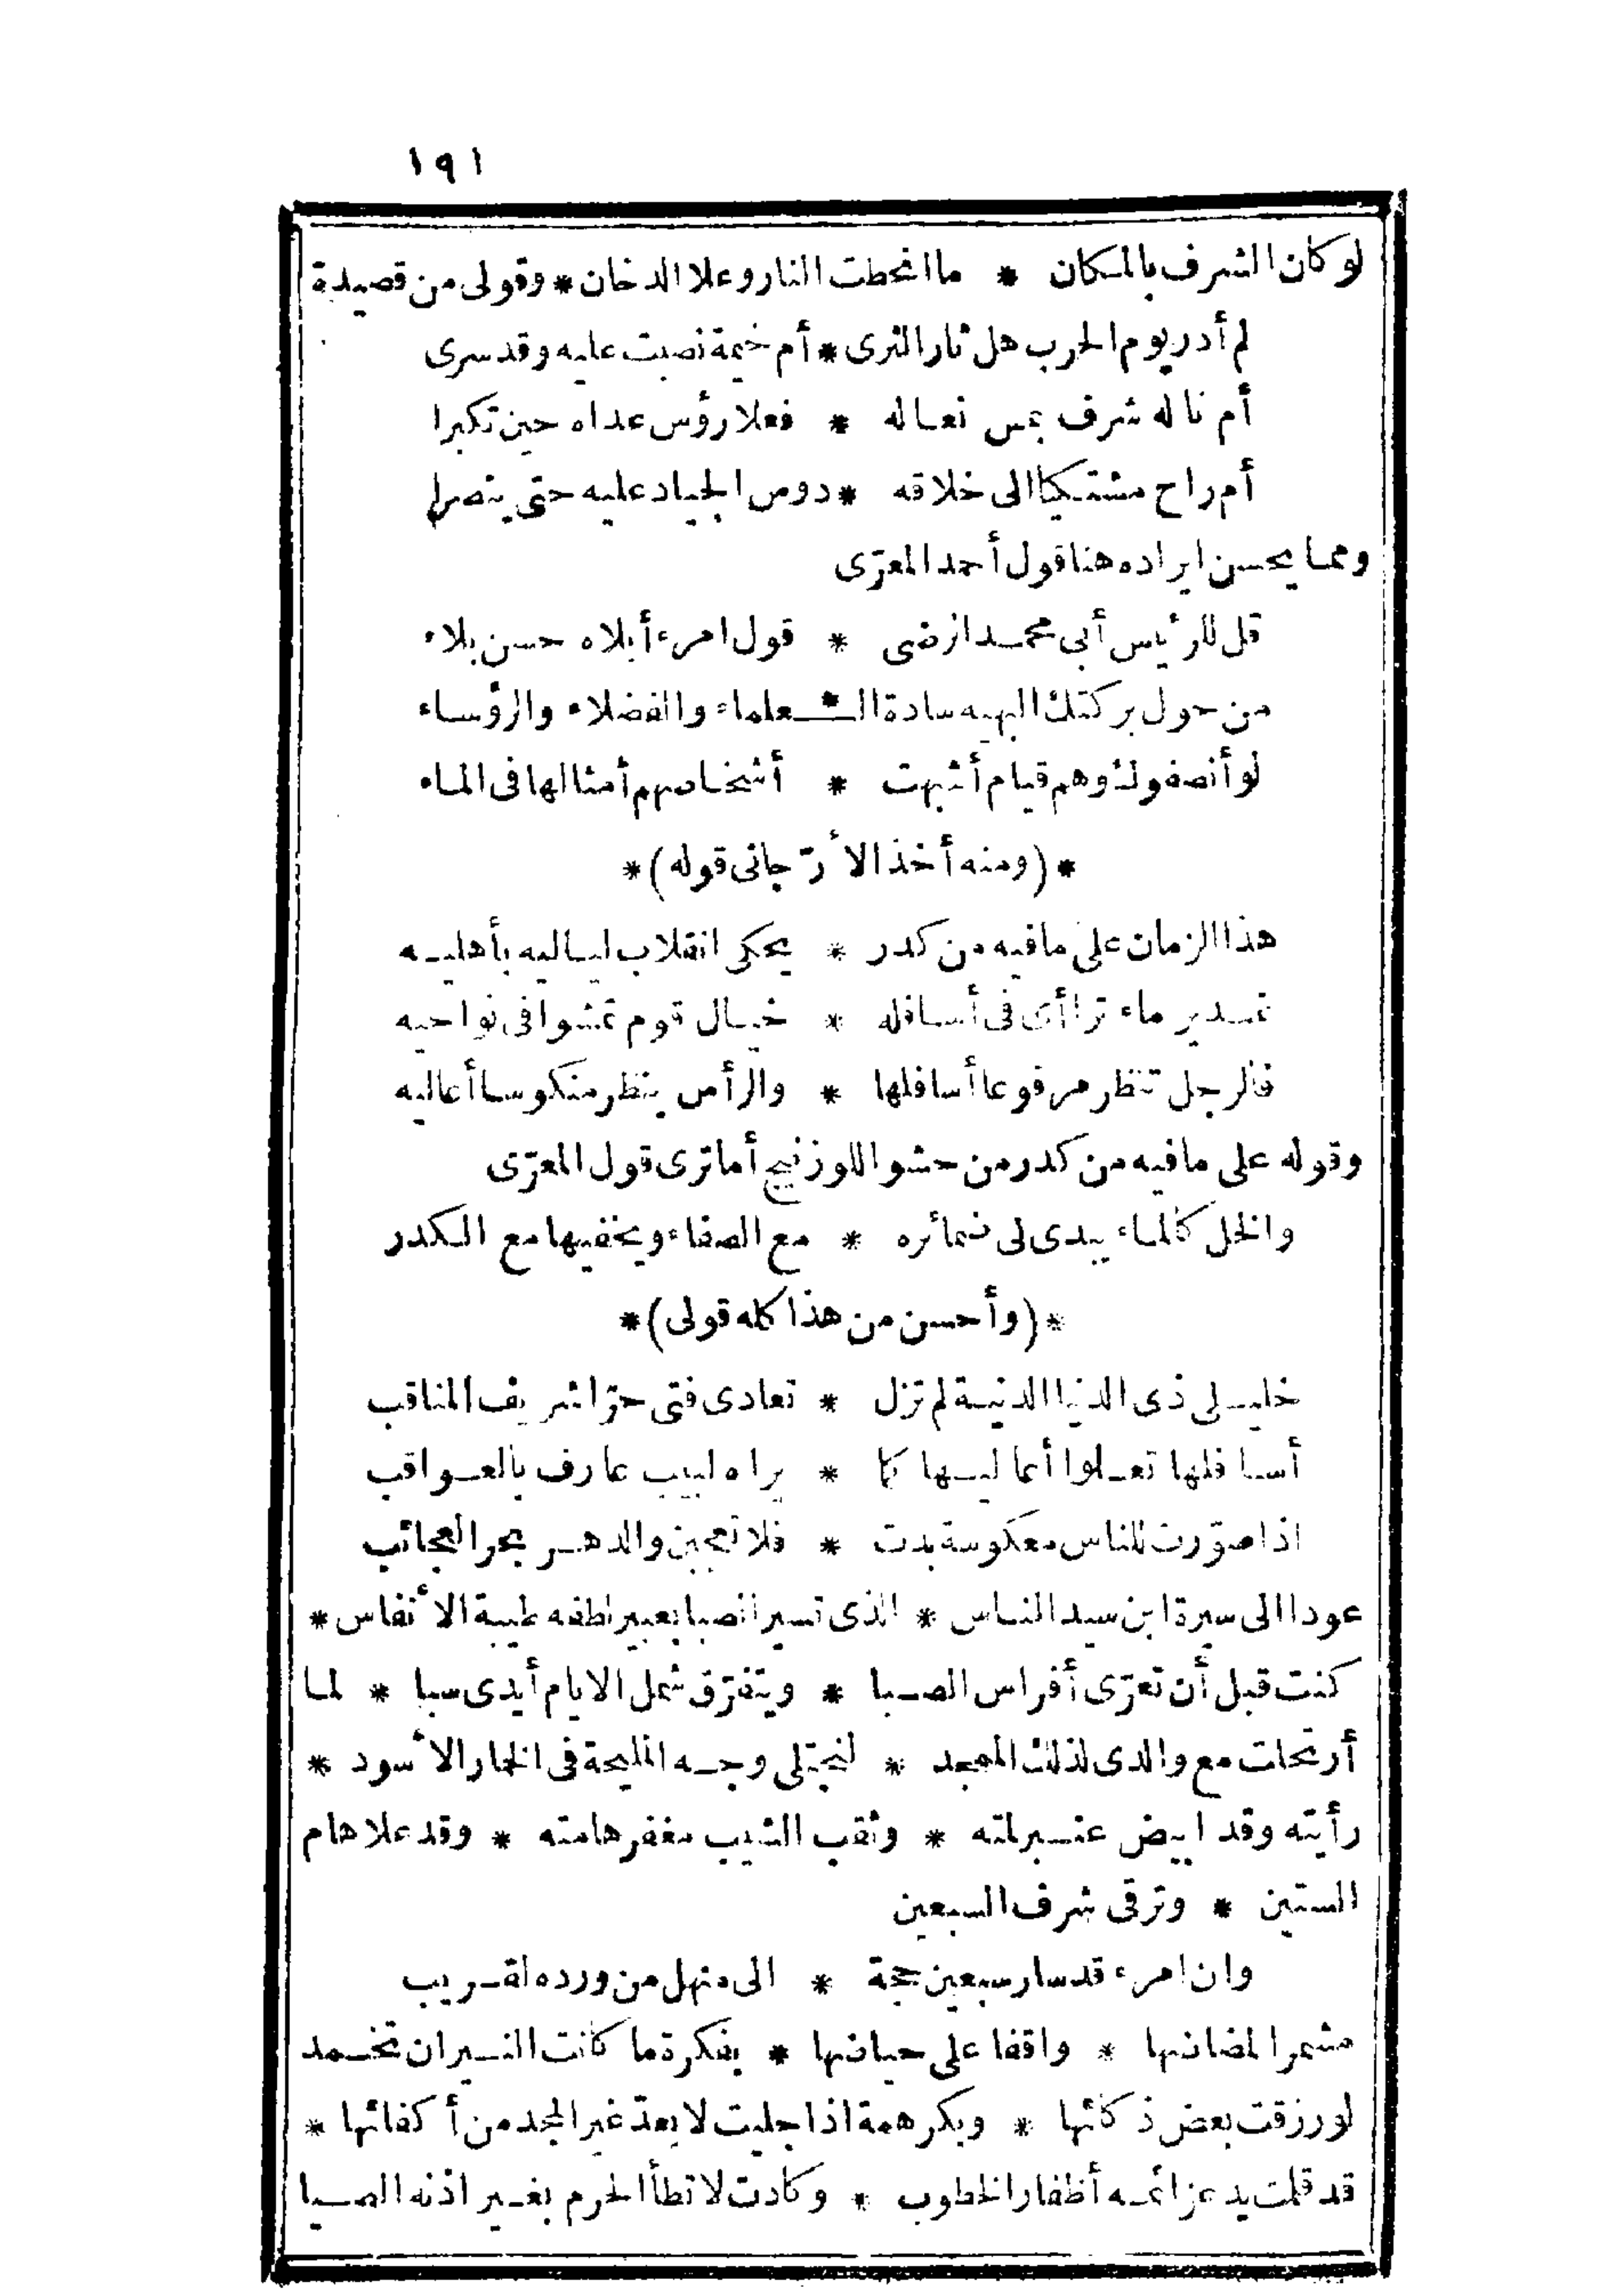 ١٩١
لو كان الشرف بالمكان * ما انحطت النار وعلا الدخان * وقولى من قصيدة
لم أدر يوم الحرب هل ثار الثرى * أم خيمة نصبت عليه وقد سرى
أم ناله شرف بمس نعاله * فعلا رؤس عداه حين تكبرا
أم راح مشتكيا الى خلاقه * دوس الجياد عليه حتى ينصرا
ومما يحسن ايراده هنا قول أحمد المعرّى
قل للرئيس أبى محمد ارضى * قول امرء أبلاه حسن بلاء
من حول بركتك البهيه سادة الـ * ـعلماء والفضلاء والرؤساء
لو أنصفوك وهم قيام أشبهت * أشخاصهم أمثالها فى الماء
* (ومنه أخذ الأرّجانى قوله) *
هذا الزمان على مافيه من كدر * يحكى انقلاب لياليه بأهليه
غدير ماء تراأى فى أسافله * خيال قوم تمشوا فى نواحيه
فالرجل تنظر مرفوعا أسافلها * والرأس ينظر منكوسا أعاليه
وقوله على مافيه من كدر من حشو اللوزنيج أما ترى قول المعرّى
والخل كالماء يبدى لى ضمائره * مع الصفاء ويخفيها مع الكدر
* (وأحسن من هذا كله قولى) *
خليلى ذى الدنيا الدنية لم تزل * تعادى فتى حرّا شريف المناقب
أسافلها تعلوا أعاليها كما * يراه لبيب عارف بالعواقب
اذا صوّرت للناس معكوسة بدت * فلا تعجبن والدهر بحر العجائب
عودا الى سيرة ابن سيد الناس * الذى تسير الصبا بعبير لطفه طيبة الأنفاس *
كنت قبل أن تعرّى أفراس الصبا * ويتفرّق شمل الايام أيدى سبا * لما
أرتحلت مع والدى لذلك المعهد * لنجتلى وجه المليحة فى الخمار الأسود *
رأيته وقد ابيض عنبر لمته * وثقب الشيب مغفر هامته * وقد علا هام
الستين * وترقى شرف السبعين
وان امرء قد سار سبعين حجة * الى منهل من ورده لقريب
مشمرا لمضانها * واقفا على حياضها * بفكرة ما كانت النيران تخمد
لو رزقت بعض ذكائها * وبكر همة اذا جليت لا يعدّ غير المجد من أكفائها *
قد قلمت يد عزائمه أظفار الخطوب * وكادت لا تطأ الحرم بغير اذنه الصبا